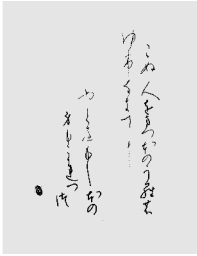 こぬ人をまつほのうらの
ゆふなきに
やくやもしほの
身もこかれつつ